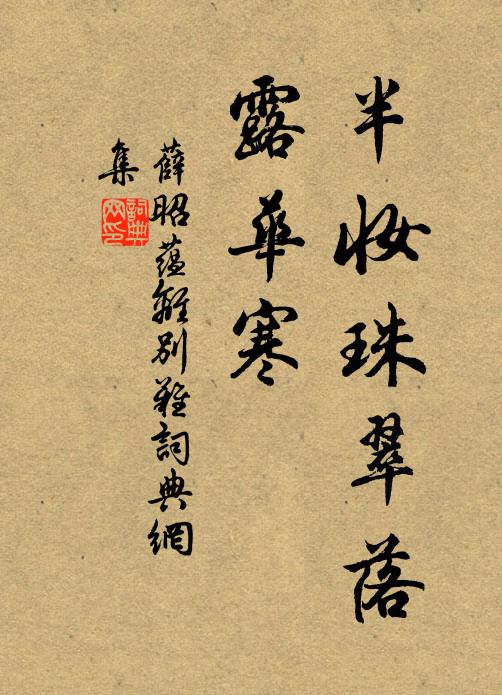 半妝珠翠落
露華寒
薛昭蘊離別難詞典網
集
詞典
網印